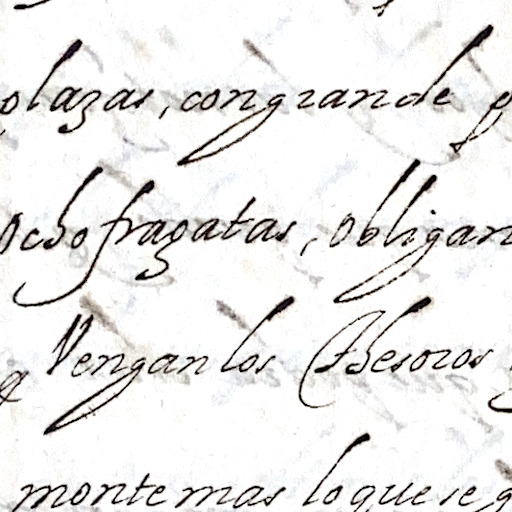 plazas, con grande
ocho fragatas, obligan
q Vengan los Thesoros
monte mas lo que se g